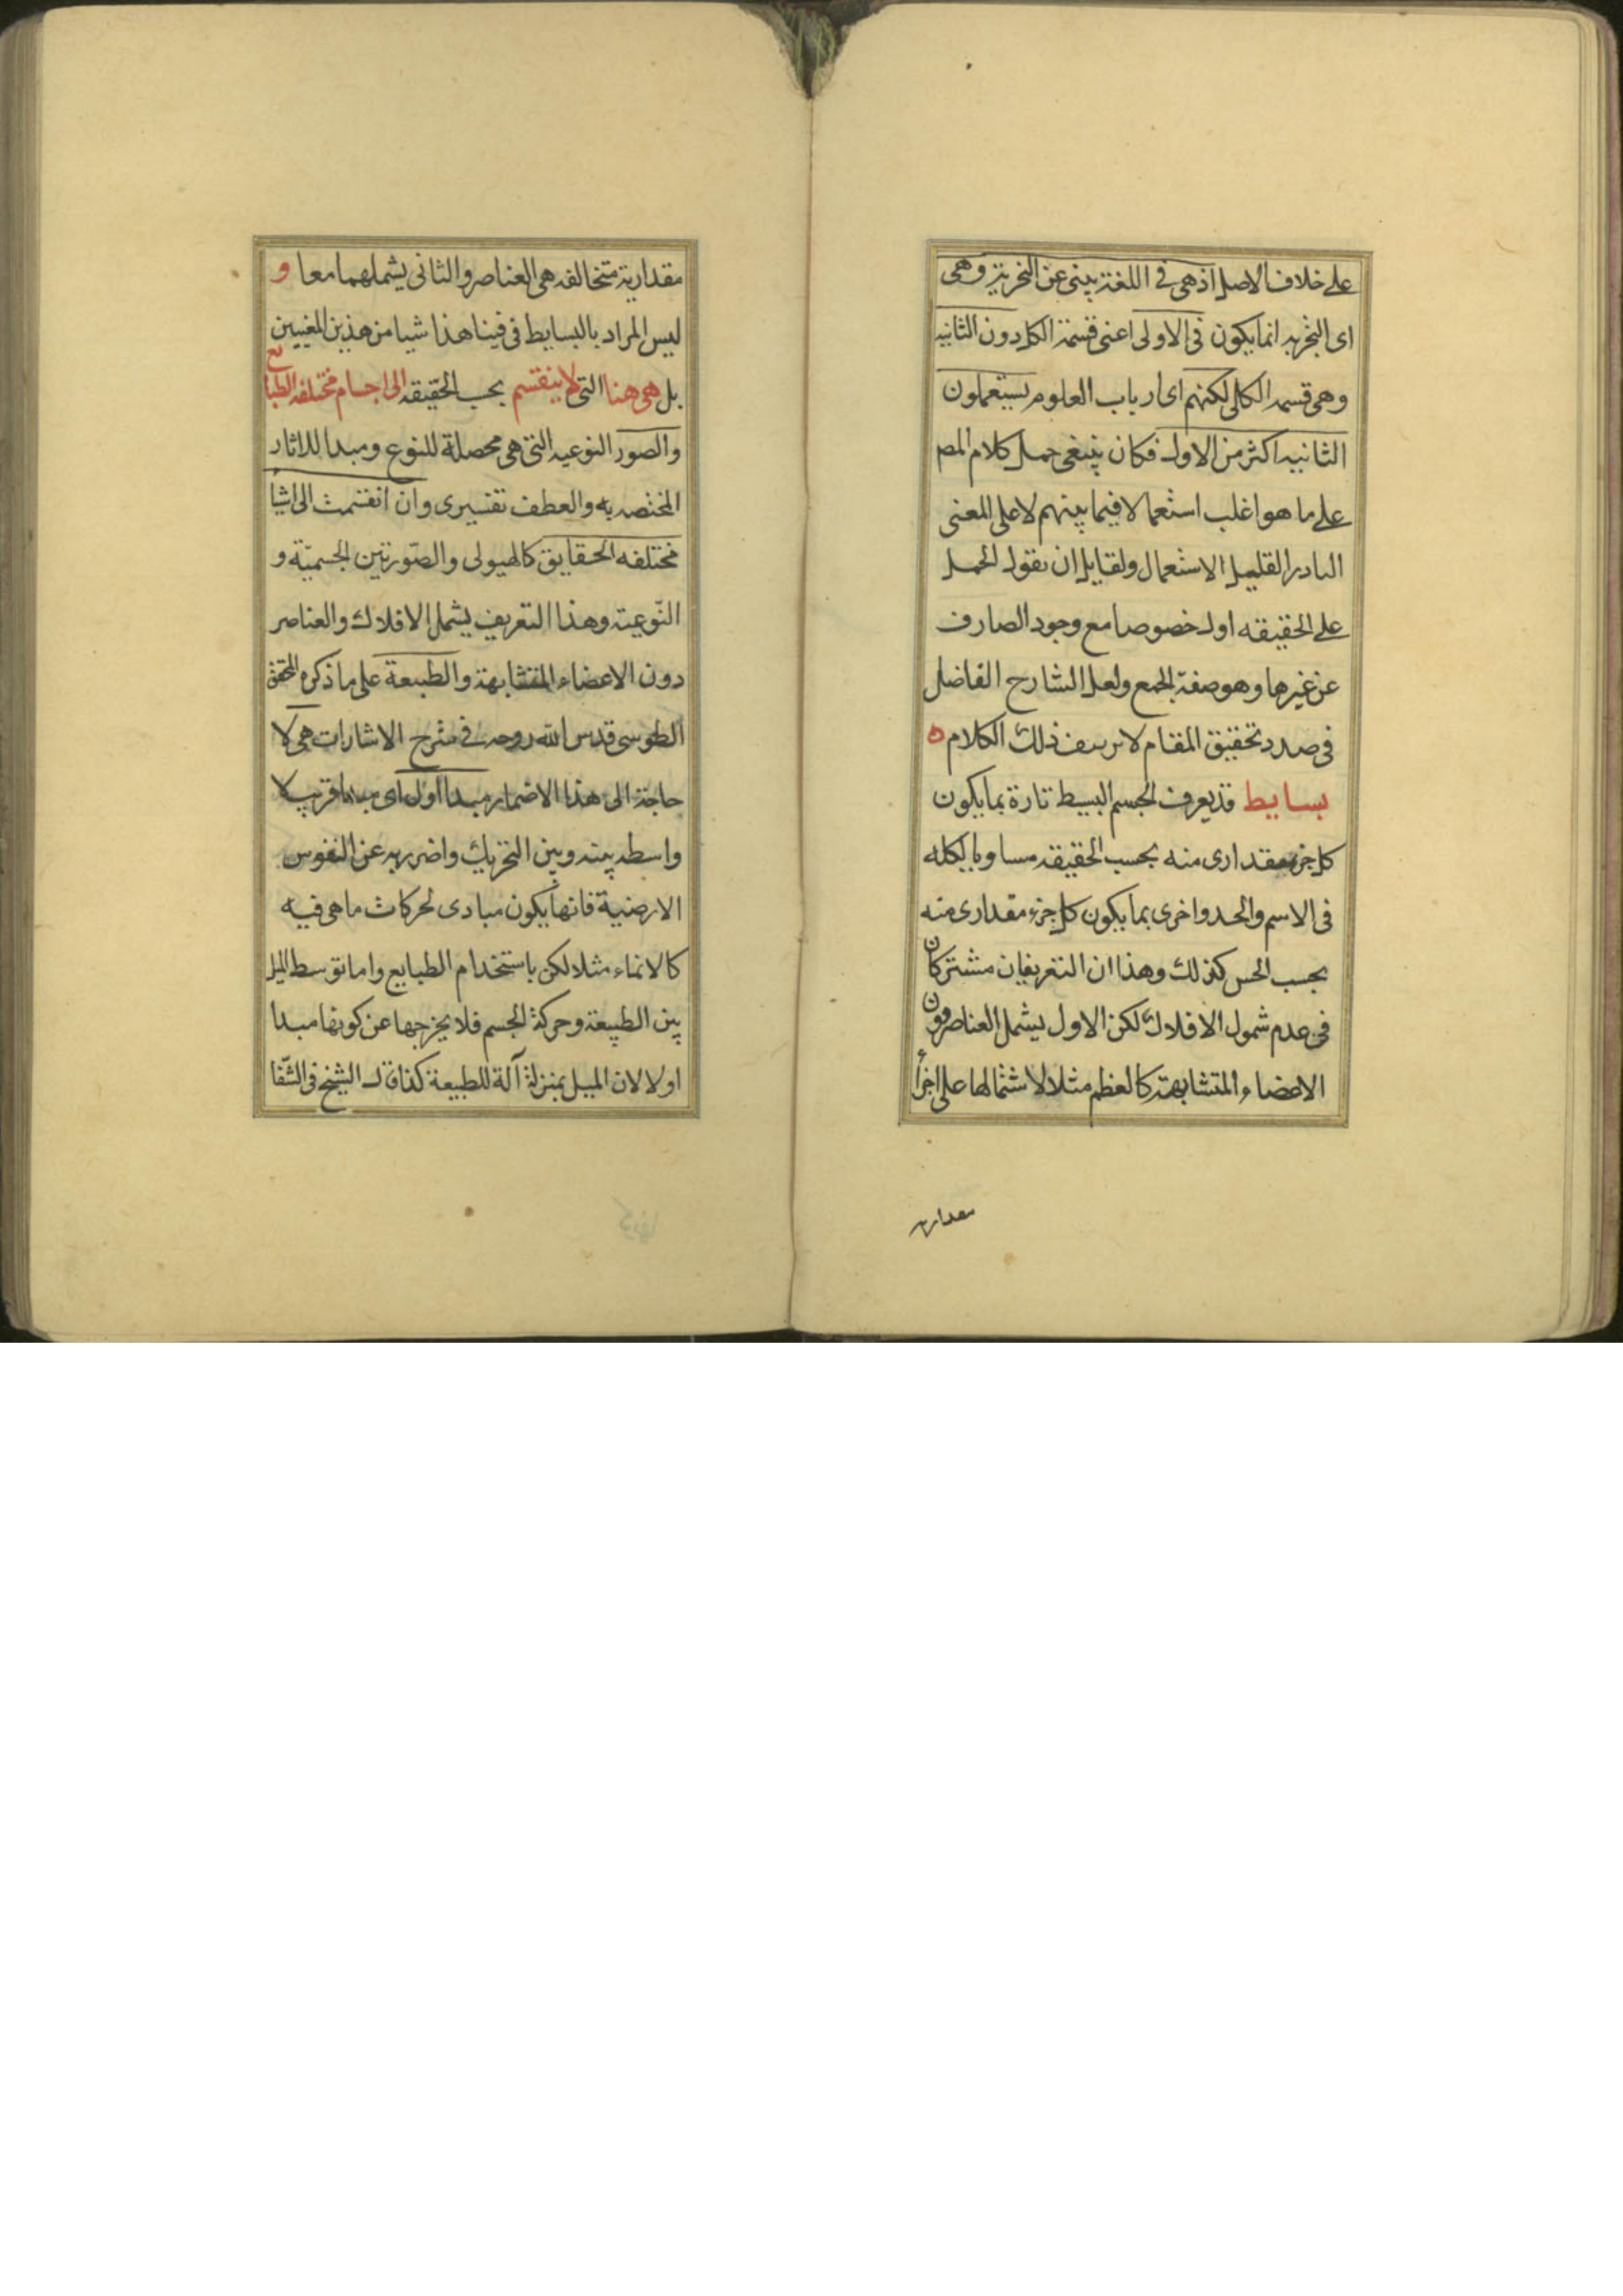 على خلاف الاصل اذ هى فى اللغة ينبى عن التجزية وهى
اى التجزيه انما يكون فى الاولى اعنى قسمة الكل دون الثانيه
وهى قسمه الكلى لكنهم اى ارباب العلوم يستعملون
الثانيه اكثر من الاول فكان ينبغى حمل كلام المص
على ما هو اغلب استعمالا فيما بينهم لا على المعنى
النادر القليل الاستعمال ولقايل ان نقول الحمل
على الحقيقه اولى خصوصا مع وجود الصارف
عن غيرها وهو صفة الجمع ولعل الشارح الفاضل
فى صدد تحقيق المقام لا ذلك الكلام ه
بسايط قد يعرف الجسم البسيط تارة بما يكون
كل جزء مقدارى منه بحسب الحقيقه مساويا لكله
فى الاسم والحد واخرى بما يكون كل جزء مقدارى منه
بحسب الحس كذلك وهذا ان التعريفان مشتركان
فى عدم شمول الافلاك لكن الاول يشمل العناصر دون
الاعضاء المتشابهة كالعظم مثلا لاشتمالها على اجزأ
مقداريه
مقدارية متخالفه هى العناصر والثانى يشملهما معا و
ليس المراد بالبسايط فى فينا هذا شيا من هذين المغيين
بل هى هنا التى لا ينقسم بحب الحقيقه الى اجسام مختلفه الطبايع
والصور النوعيه التى هى محصلة للنوع ومبدا للاثار
المختصه به والعطف تفسيرى وان انقسمت الى اشيأ
مختلفه الحقايق كالهيولى والصّورتين الجسميّة و
النّوعية وهذا التعريف يشمل الافلاك والعناصر
دون الاعضاء المتشابهة والطبيعة على ما ذكره المحقق
الطوسى قدس الله روحه فى شرح الاشارات هى لا
حاجة الى هذا الاضمار مبدا اول اى مبدا قريب لا
واسطه بينه وبين التحريك واضرر به عن النفوس
الارضية فانها يكون مبادى لحركات ما هى فيه
كالانماء مثلا لكن باستخدام الطبايع واما توسط الميل
بين الطبيعة وحركة الجسم فلا يخرجها عن كونها مبدا
اولا لان الميل بمنزلة آلة للطبيعة كذا قال الشيخ فى الشّفا